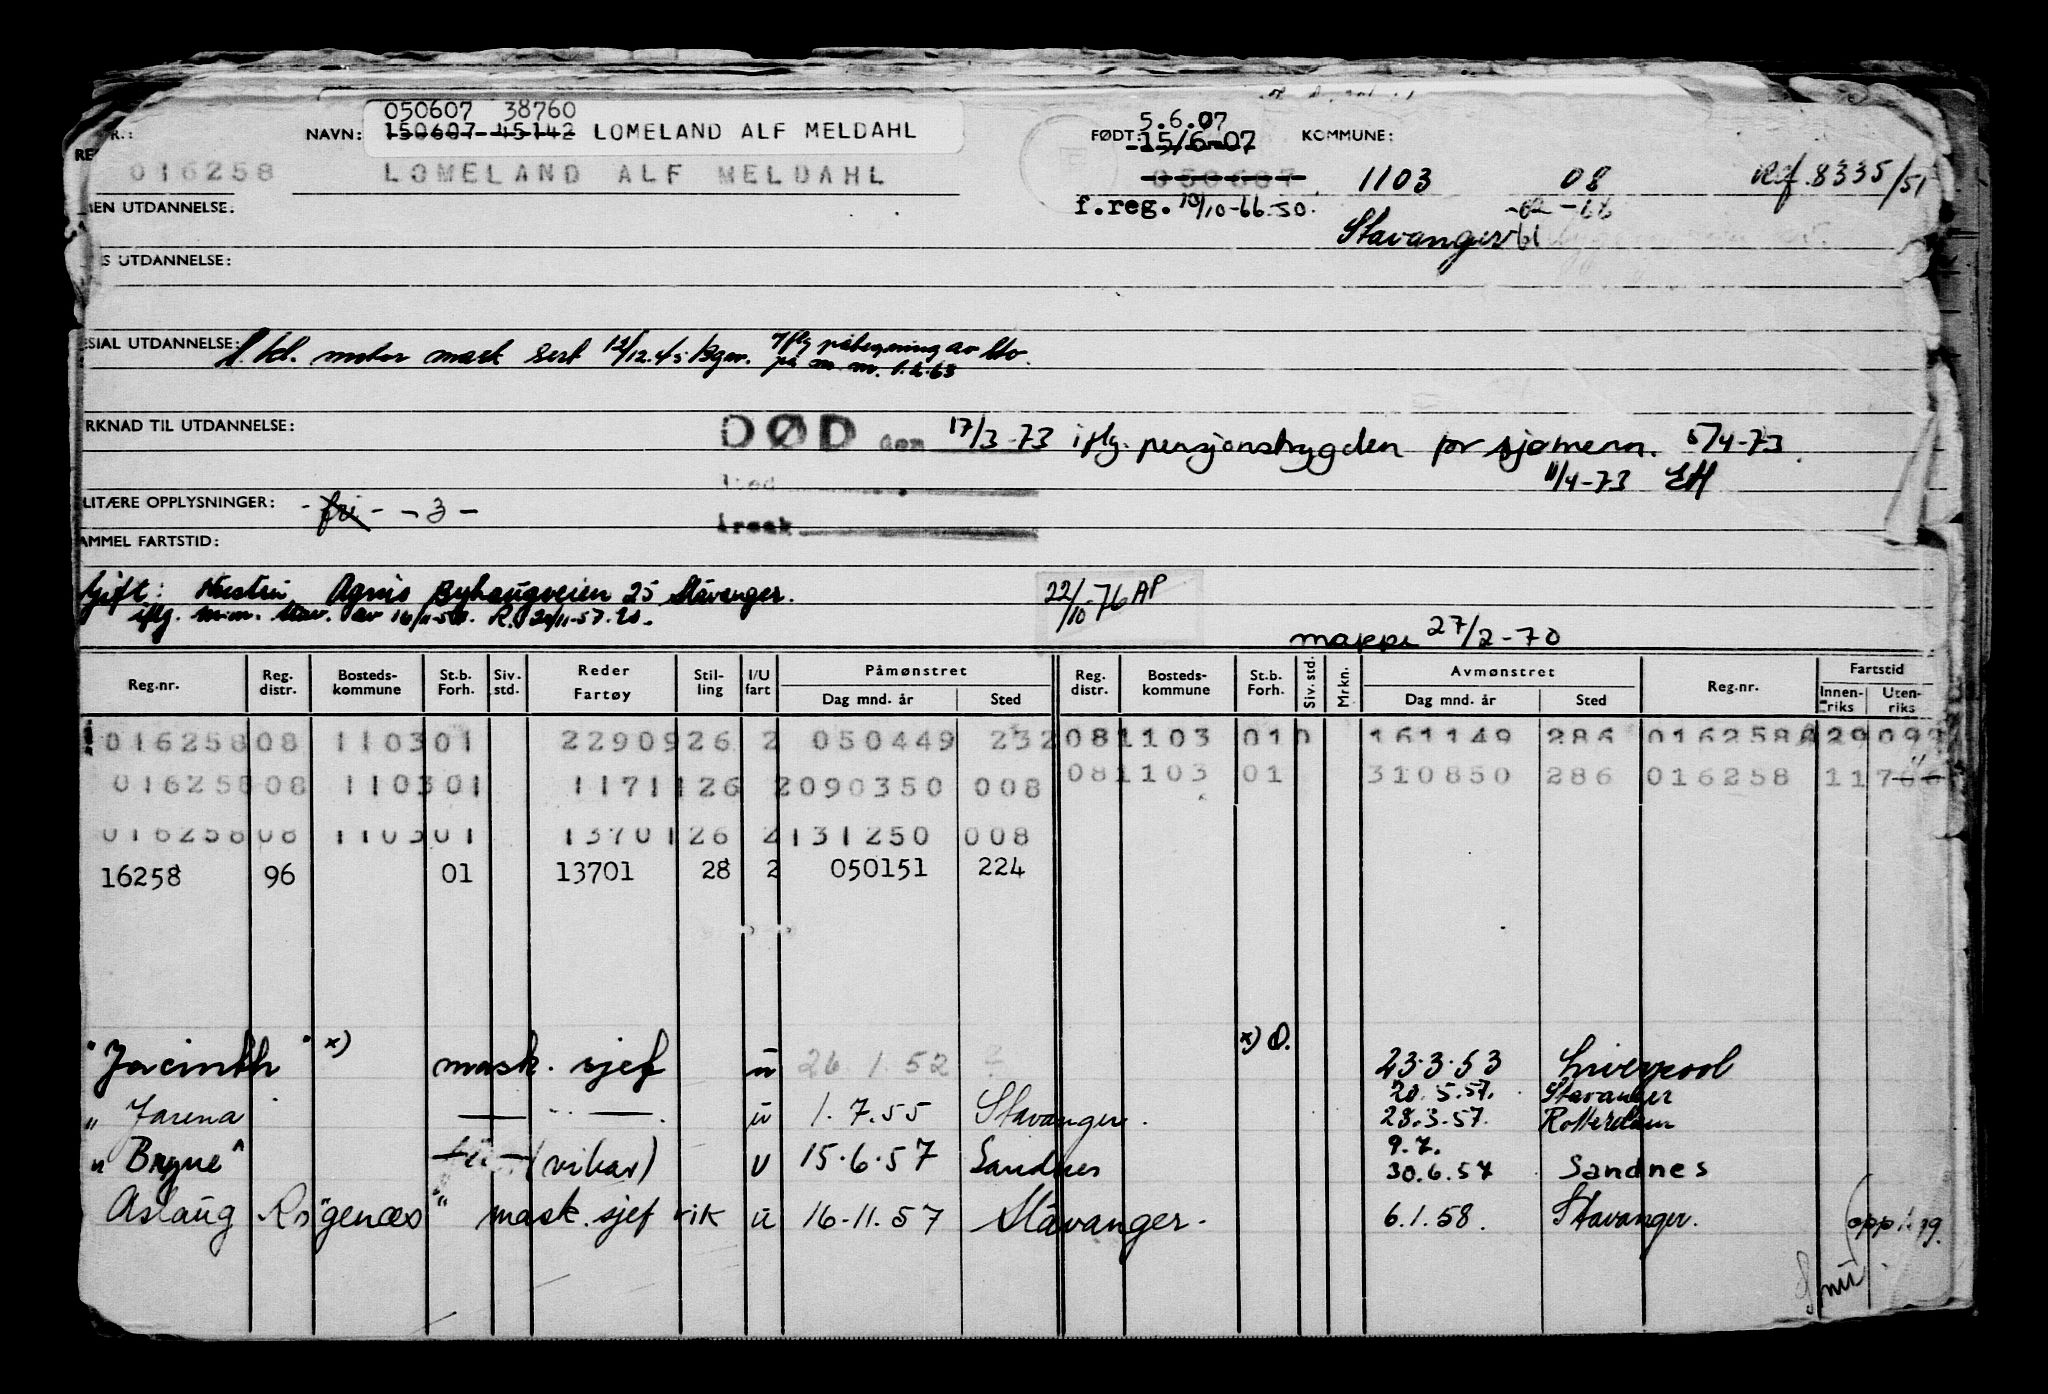 050607 38760
R.:
NAVN: 150607 45142 LOMELAND ALF MELDAHL
FØDT: 5.6.07
15/6-07
KOMMUNE:
016258 LOMELAND ALF MELDAHL 050607 1103 08 Ref. 8335/51
MEN UTDANNELSE:
f.reg. 10/10-66.50.
-02 -68
Stavanger 61
S UTDANNELSE:
SIAL UTDANNELSE: mask sert
RKNAD TIL UTDANNELSE: DØD den 17/3-73 iflg. pensjonstrygden for sjømenn. 5/4-73.
11/4-73 EH
sted
LITÆRE OPPLYSNINGER: - fri - - 3 -
årsak
AMMEL FARTSTID:
Gift: Agnes Byhaugveien 25 Stavanger.
22/10-76 AP
iflg. m.m. Stav. av 16/11-57. R. 20/11-57.
mappe 27/2-70
Reg.nr. Reg. distr. Bosteds- kommune St.b. Forh. Siv. std. Reder Fartøy Stil- ling I/U fart Påmønstret Dag mnd. år Sted Reg. distr. Bosteds- kommune St.b. Forh. Siv. std. Mrkn. Avmønstret Dag mnd. år Sted Reg.nr. Fartstid Innen- riks Uten- riks
016258 08 1103 01 22909 26 2 050449 232 08 1103 01 0 161149 286 016258
016258 08 1103 01 11711 26 2 090350 008 08 1103 01 310850 286 016258
016258 08 1103 01 13701 26 2 131250 008
16258 96 01 13701 28 2 050151 224
"Jacinth" x) mask. sjef u 26 1.52 ? x) O. 23.3.53 Liverpool
20.5.57. Stavanger
" Jarena — " — u 1.7.55 Stavanger. 28.3.57. Rotterdam
9.7.
" Bryne" (vikar) u 15.6.57 Sandnes 30.6.57 Sandnes
Aslaug Rogenæs" mask. sjef vik u 16-11.57 Stavanger. 6.1.58. Stavanger.